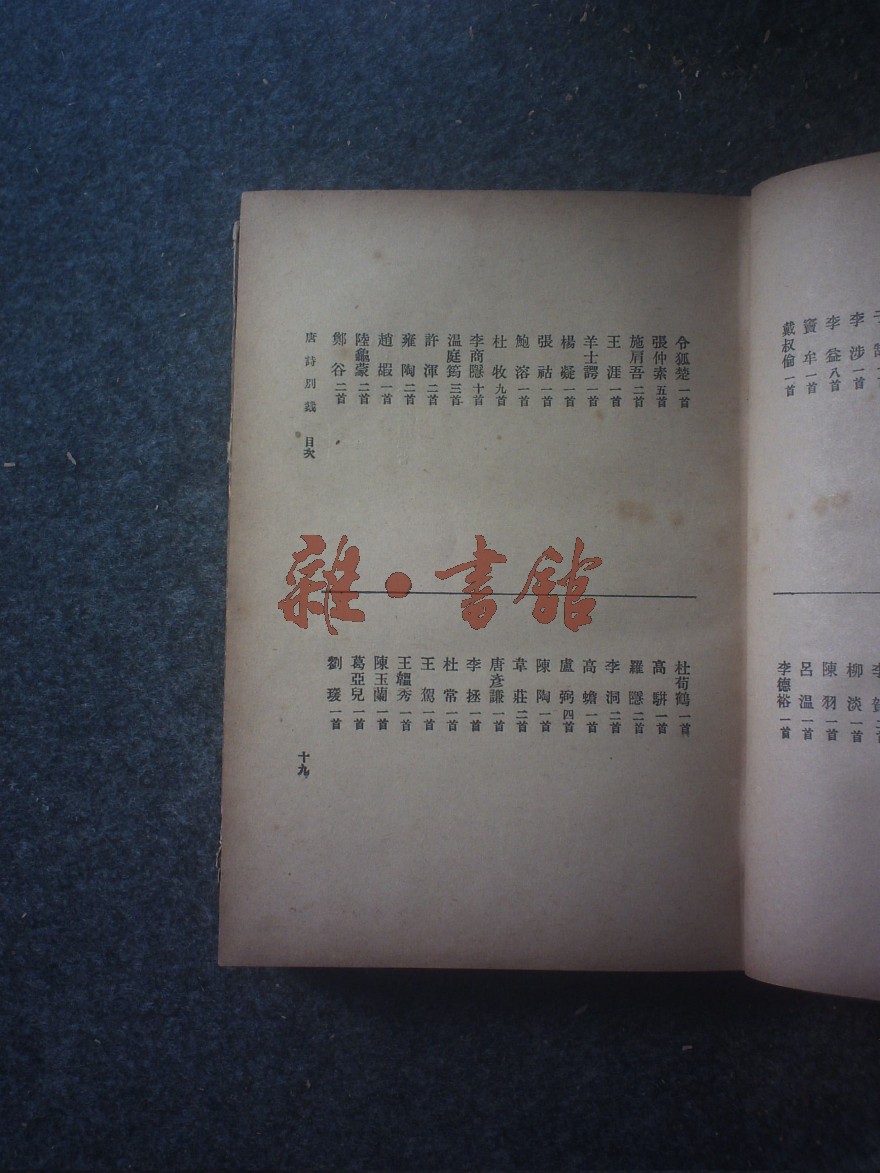 李涉一首
李益八首
竇牟一首
戴叔倫一首
柳淡一首
陳羽一首
呂溫一首
李德裕一首
令狐楚一首
張仲素五首
施肩吾二首
王涯一首
羊士諤一首
楊凝一首
張祜一首
鮑溶一首
杜牧九首
李商隱十首
溫庭筠三首
許渾二首
雍陶二首
趙嘏一首
陸龜蒙二首
鄭谷二首
杜荀鶴一首
高駢一首
羅隱二首
李洞二首
高蟾一首
盧弼四首
陳陶一首
韋莊二首
唐彥謙一首
李拯一首
杜常一首
王駕一首
王韞秀一首
陳玉蘭一首
葛亞兒一首
劉瑗一首
唐詩別裁 目次
十九
雜·書館